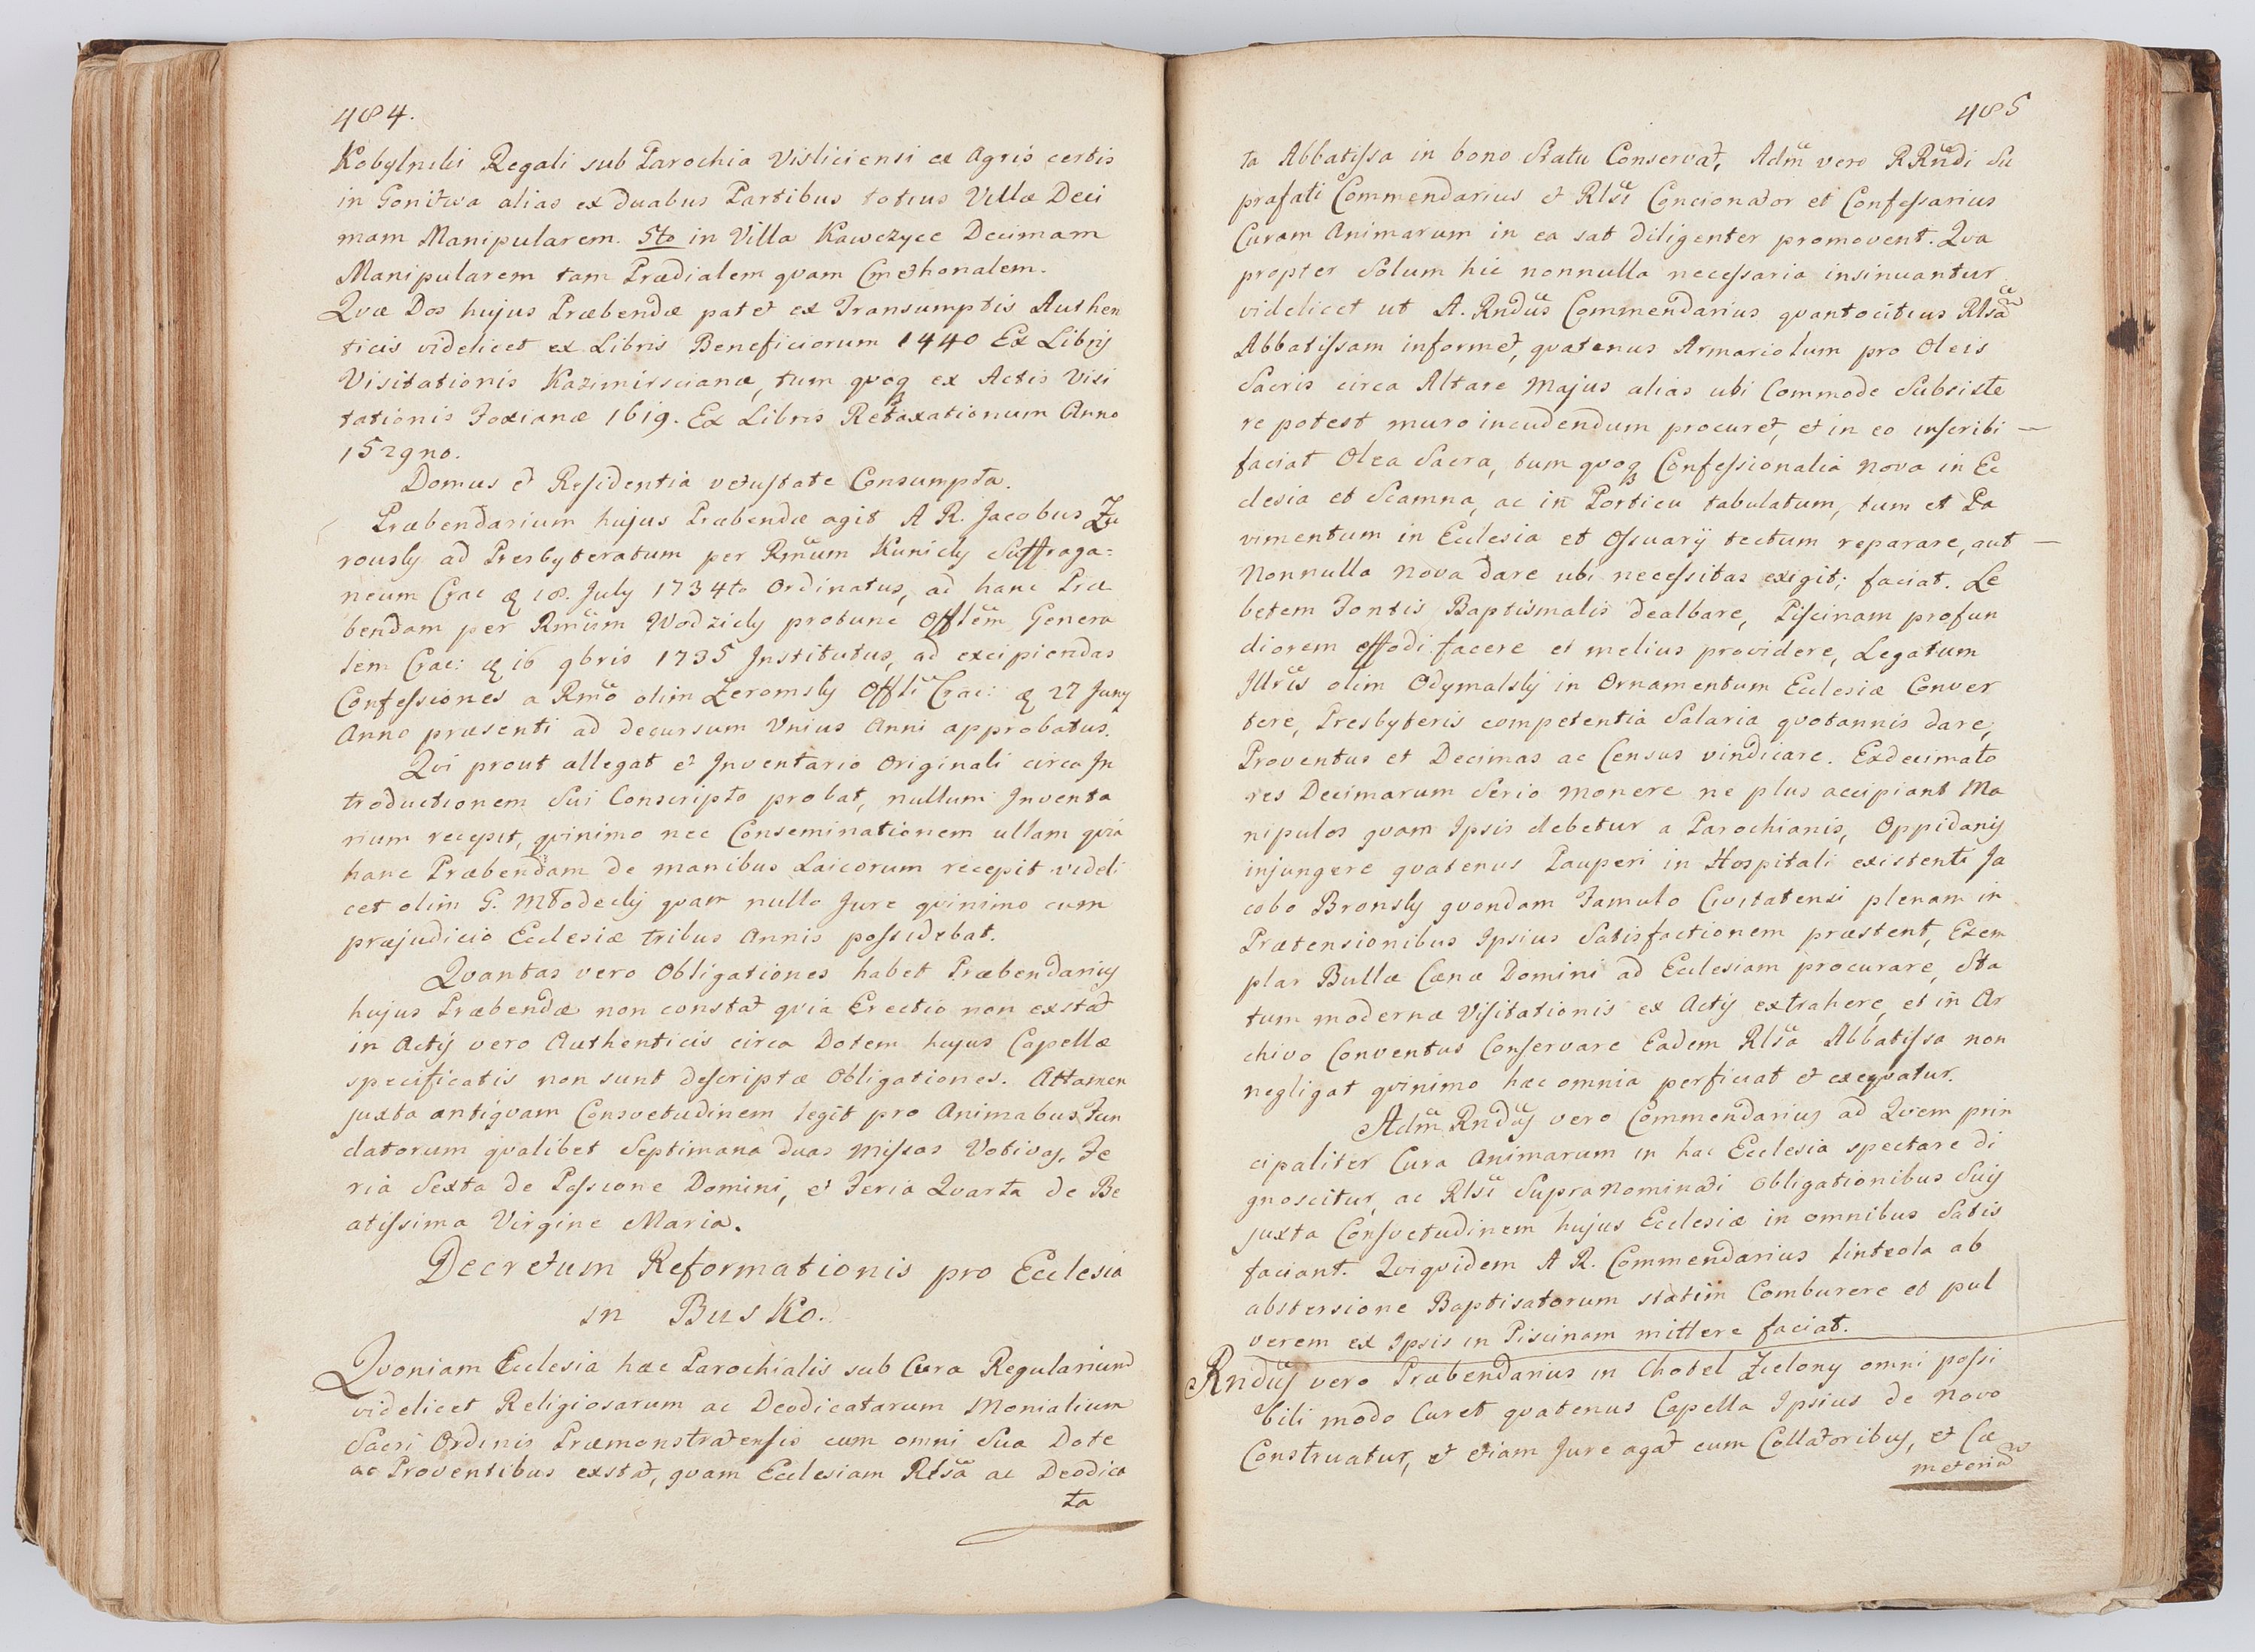 484.
Kobylniki Regali sub Parochia Visliciensi ex Agris certis
in Gonitwa alias ex duabus Partibus totius Villæ Deci
mam Manipularem. 5to in Villa Kawczyce Decimam
Manipularem tam Prædialem quam Cmethonalem.
Qvæ Dos hujus Præbendæ patet ex Transumptis Authen
ticis videlicet ex Libris Beneficiorum 1440 Ex Libris
Visitationis Kazimirscianæ, tum qvoq ex Actis Visi
tationis Foxianæ 1619. Ex Libris Retaxationum Anno
1529no.
Domus et Residentia vetustate Consumpta.
Præbendarium hujus Præbendæ agit A R. Jacobus Zu
rously ad Presbyteratum per Rmum Kunicly Suffraga=
neum Crac 18. July 1734to Ordinatus, ad hanc Præ
bendam per Rmum Wodzicly protunc Offlem Genera
lem Crac: 16 9bris 1735 Institutus, ad excipiendas
Confessiones a Rmo olim Zeromsly Offli Crac: 27 Juny
Anno præsenti ad decursum Unius Anni approbatus.
Qvi prout allegat et Inventario Originali circa In
troductionem Sui Conscripto probat, nullum Inventa
rium recepit, qvinimo nec Conseminationem ullam qvia
hanc Præbendam de manibus Laicorum recepit videli
cet olim G. Młodecly qvam nullo Jure qvinimo cum
præjudicio Ecclesiæ tribus Annis possidebat.
Qvantas vero Obligationes habet Præbendarius
hujus Præbendæ non constat qvia Erectio non exstat
in Actis vero Authenticis circa Dotem hujus Capellæ
specificatis non sunt descriptæ Obligationes. Attamen
juxta antiqvam Consvetudinem legit pro Animabus Fun
datorum qvalibet Septimana duas Missas Votivas, Fe
ria Sexta de Passione Domini, et Feria Qvarta de Be
atissima Virgine Maria.
Decretum Reformationis pro Ecclesia
in Busko.
Qvoniam Ecclesia hæc Parochialis sub Cura Regularium
videlicet Religiosarum ac Deodicatarum Monialium
Sacri Ordinis Præmonstratensis cum omni Sua Dote
ac Proventibus exstat, qvam Ecclesiam Rlsa ac Deodica
ta
485
ta Abbatissa in bono Statu Conservat, Adm vero RRndi Su
prafati Commendarius et Rlsi Concionator et Confessarius
Curam Animarum in ea sat diligenter promovent. Qva
propter Solum hic nonnulla necessaria insinuantur
videlicet ut A. Rndus Commendarius qvantocitius Rlsam
Abbatissam informet, qvatenus Armariolum pro Oleis
Sacris circa Altare Majus alias ubi Commode Subsiste
re potest muro incudendum procuret, et in eo inscribi
faciat Olea Sacra, tum qvoq Confessionalia nova in Ec
clesia et Scamna, ac in Porticu tabulatum, tum et Pa
vimentum in Ecclesia et Ossuarij tectum reparare, aut
Nonnulla nova dare ubi necessitas exigit; faciat. Le
betem Fontis Baptismalis dealbare, Piscinam profun
diorem effodi facere et melius providere, Legatum
Illris olim Odymalsly in Ornamentum Ecclesiæ Conver
tere, Presbyteris competentia Salaria qvotannis dare,
Proventus et Decimas ac Census vindicare. Exdecimato
res Decimarum Serio monere ne plus accipiant Ma
nipulos qvam Ipsis debetur a Parochianis, Oppidanis
injungere qvatenus Pauperi in Hospitali existenti Ja
cobo Bronsly qvondam Famulo Civitatensi plenam in
Prætensionibus Ipsius Satisfactionem præstent, Exem
plar Bullæ Cænæ Domini ad Ecclesiam procurare, Sta
tum modernæ Visitationis ex Actis extrahere, et in Ar
chivo Conventus Conservare Eadem Rlsa Abbatissa non
negligat qvinimo hæc omnia perficiat et exeqvatur.
Adm Rndus vero Commendarius ad Qvem prin
cipaliter Cura Animarum in hac Ecclesia spectare di
gnoscitur, ac Rlsi Supra Nominati Obligationibus Suis
juxta Consvetudinem hujus Ecclesiæ in omnibus Satis
faciant. Qviqvidem A R. Commendarius linteola ab
abstersione Baptisatorum statim Comburere et pul
verem ex Ipsis in Piscinam mittere faciat.
Rndus vero Præbendarius in Chotel Zielony omni possi
bili modo Curet qvatenus Capella Ipsius de Novo
Construatur, et etiam Jure agat cum Collatoribus, et Cæ
meteria